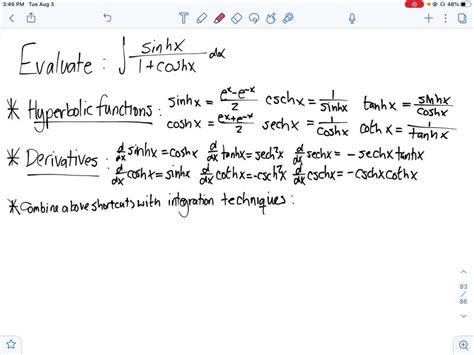 3:46 PM Tue Aug 3
48%
Evaluate: ∫ sinhx/(1+coshx) dx
* Hyperbolic functions: sinhx = (e^x-e^-x)/2 cschx = 1/sinhx tanhx = sinhx/coshx
coshx = (e^x+e^-x)/2 sechx = 1/coshx cothx = 1/tanhx
* Derivatives: d/dx sinhx = coshx d/dx tanhx = sech²x d/dx sechx = -sechxtanhx
d/dx coshx = sinhx d/dx cothx = -csch²x d/dx cschx = -cschxcothx
* Combine above shortcuts with integration techniques:
83
/
86